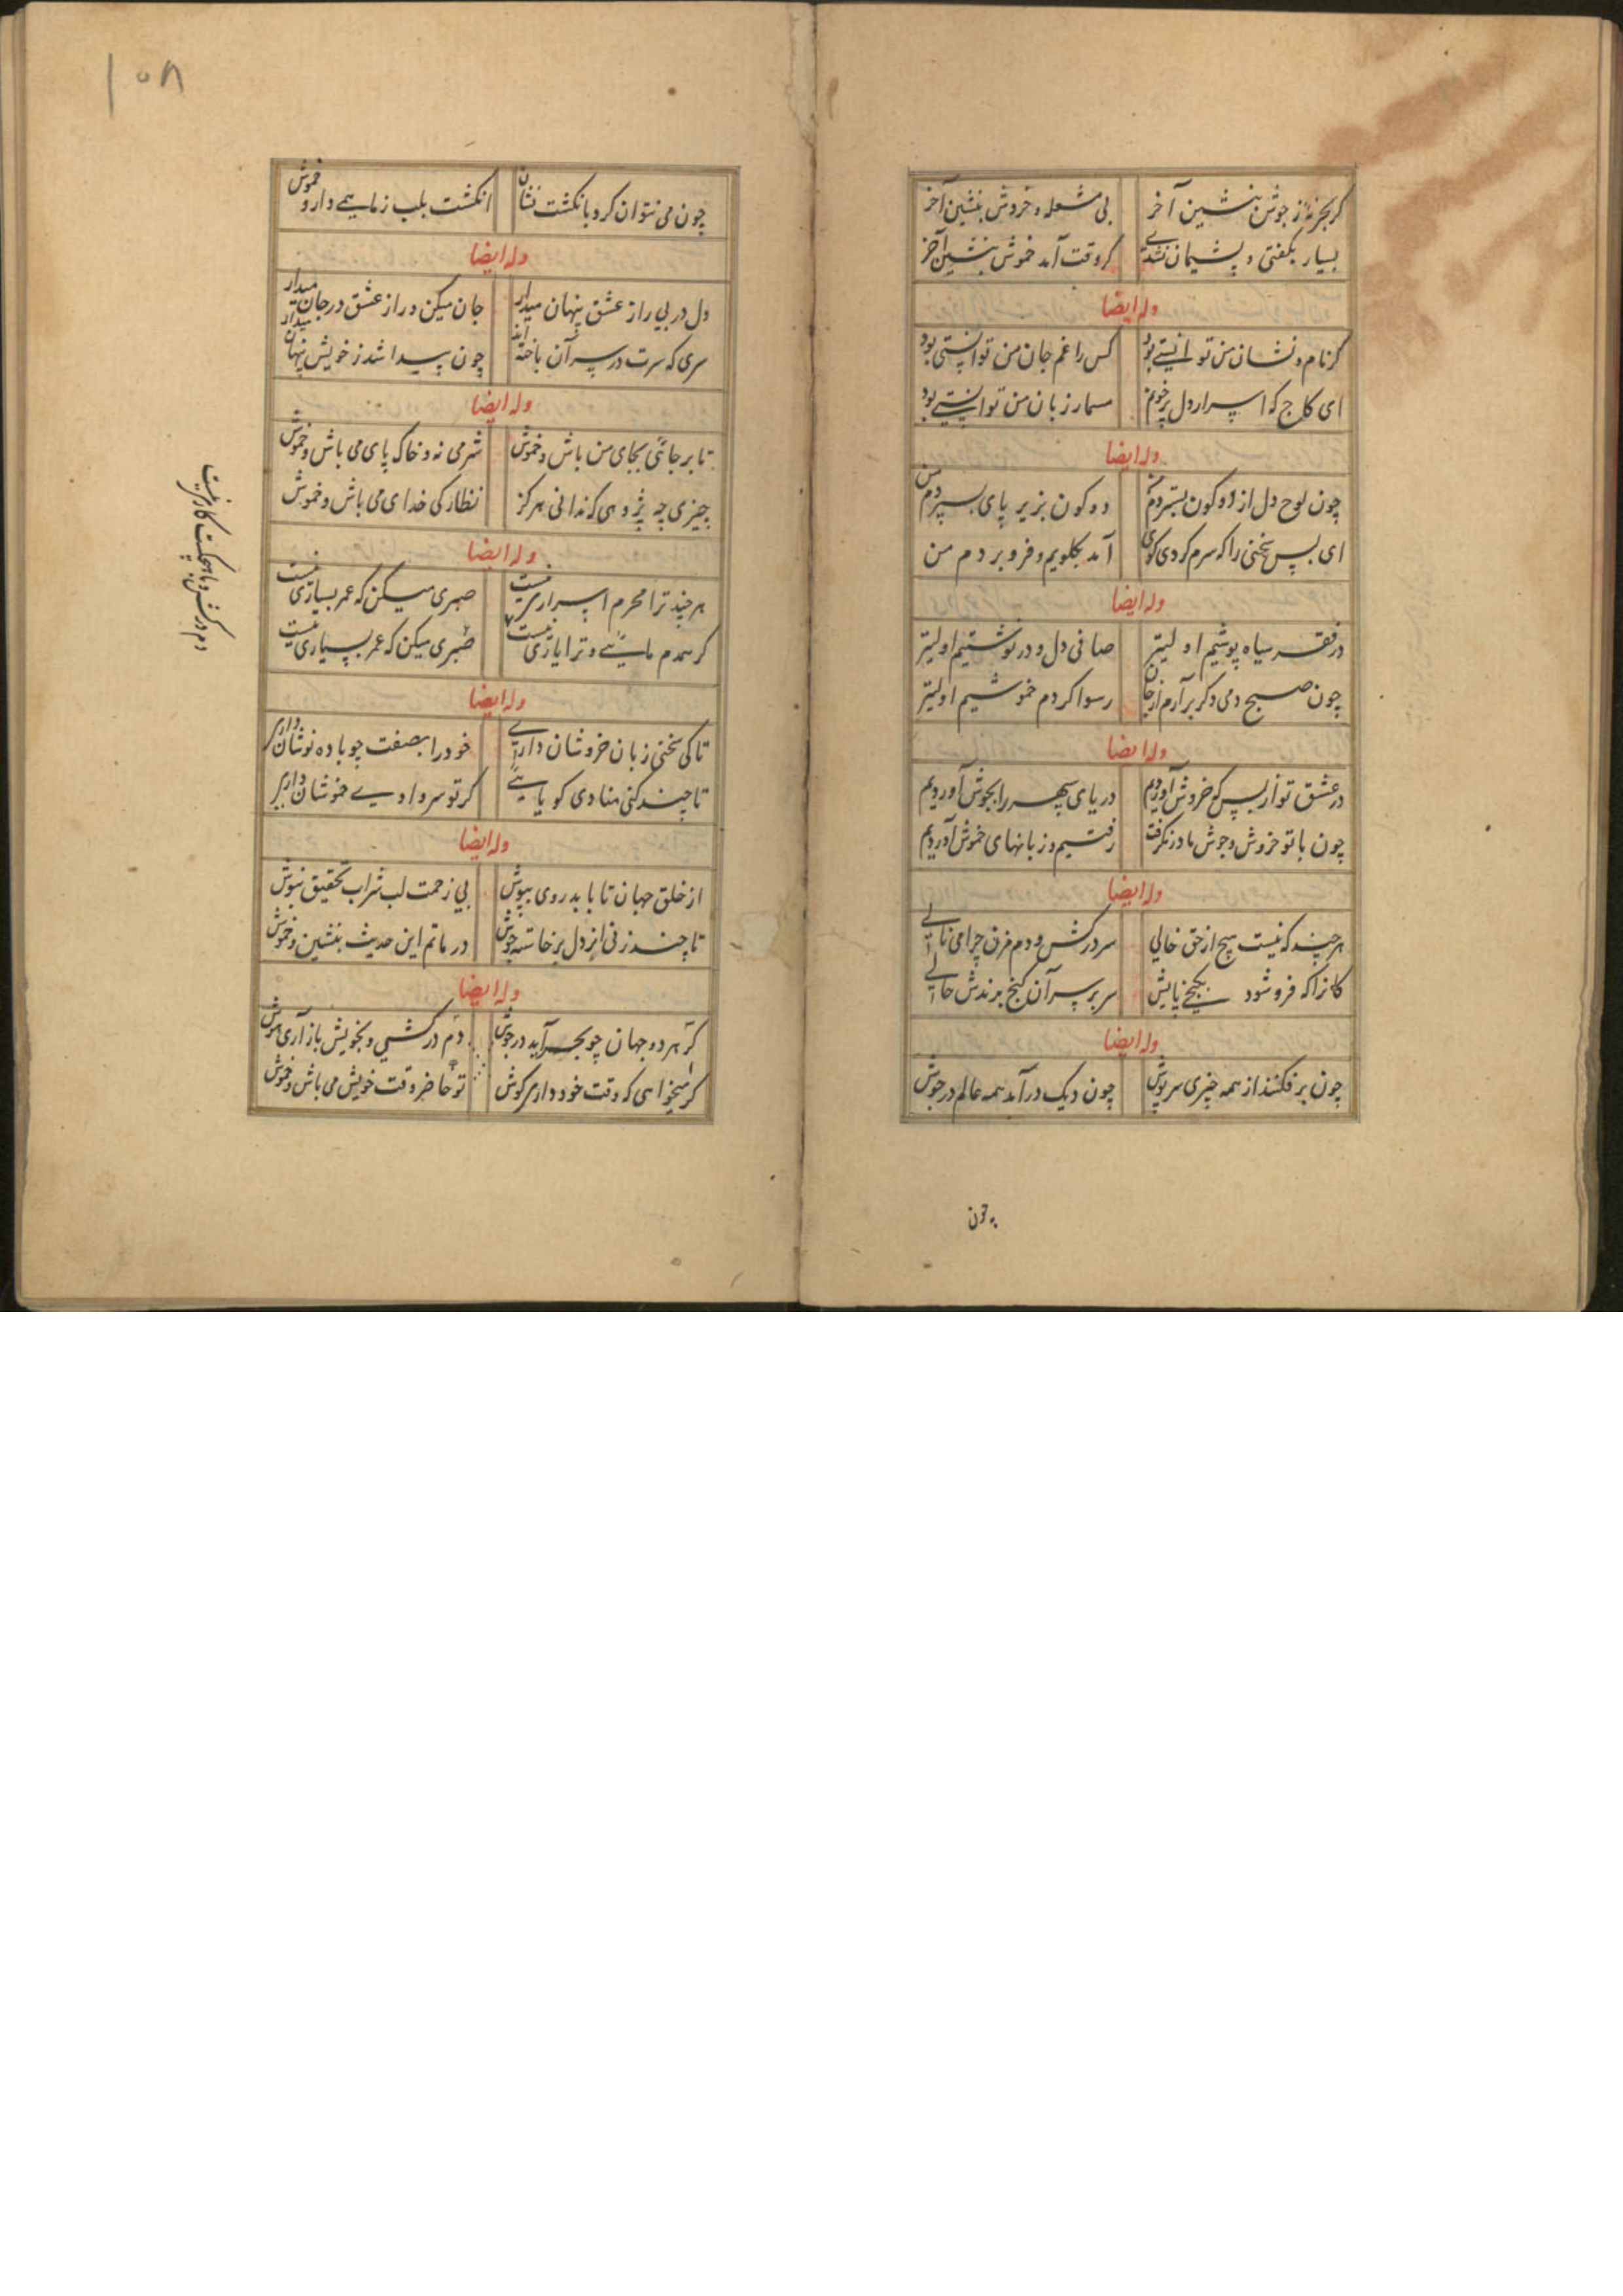 گر بحر نهٔ ز جوش بنشین آخر بی مشعله و خروش بنشین آخر
بسیار بگفتی و پشیمان نشدی گر وقت آمد خموش بنشین آخر
وله ایضا
گر نام و نشان من توانستی بود کس را غم جان من توانستی بود
ای کاج که اسرار دل پر خونم مسمار زبان من توانستی بود
وله ایضا
چون لوح دل از دو کون بستردم من دو کون بزیر پای بسپردم من
ای بس سخنی را که سرم گردی گوی آمد بگلویم و فرو بردم من
وله ایضا
در فقر سیاه پوشیم اولیتر صافی دل و درد نوشیم اولیتر
چون صبح دمی دگر برآرم از جان رسوا گردم خموشیم اولیتر
وله ایضا
در عشق تو از بس که خروش آوردیم دریای سپهر را بجوش آوردیم
چون با تو خروش و جوش ما در نگرفت رفتیم و زبانهای خموش آوردیم
وله ایضا
هر چند که نیست هیچ از حق خالی سر درکش و دم مزن چرا می نالی
کانرا که فرو شود بگنجی پایش سر بر سر آن گنج برندش حالی
وله ایضا
چون بر فکنند از همه چیزی سرپوش چون دیک درآید همه عالم در جوش
چون
۱۰۸
چون می نتوان کرد بانگشت نشان انگشت بلب ز ماهیی دار و خموش
وله ایضا
دل در پی راز عشق پنهان میدار جان میکن و راز عشق در جان میدار
سری که سرت در سر آن باخته اند چون پیدا شد ز خویش پنهان میدار
وله ایضا
تا بر جائی بجای من باش و خموش شرمی نه و خاک پای می باش و خموش
چیزی چه پژوهی که ندانی هرگز نظارگی خدای می باش و خموش
وله ایضا
هر چند ترا محرم اسراری نیست صبری میکن که عمر بسیاری نیست
گر همدم مائی و ترا یاری نیست صبری میکن که عمر بسیاری نیست
دم درکش و با هیچکست کاری نیست
وله ایضا
تا کی سخنی زبان خروشان داری خود را بصفت چو باده نوشان داری
تا چند کنی منادی گویایی گر تو سر وادیی خموشان داری
وله ایضا
از خلق جهان تا باید روی بپوش بی زحمت لب شراب تحقیق بنوش
تا چند زنی از دل برخاسته جوش در ماتم این حدیث بنشین و خموش
وله ایضا
گر هر دو جهان چو بحر آید در جوش دم درکشی و بخویش باز آری هوش
گر میخواهی که وقت خود داری گوش تو حاضر وقت خویش می باش و خموش